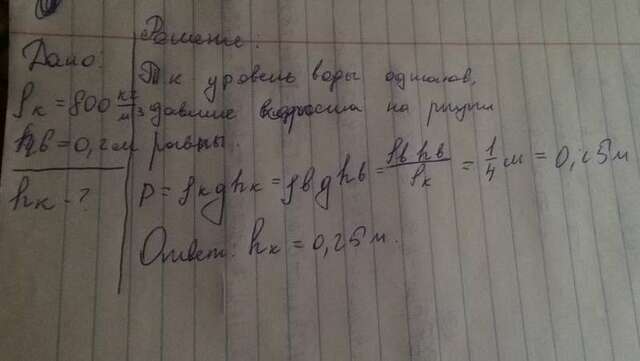 Дано:
ρк = 800 кг/м³
hв = 0,2 м
hк - ?
Решение:
Тк уровень воды одинаков,
давление на ртути
равны.
P = ρкghк = ρвghв = ρвhв/ρк = 1/4 м = 0,25 м
Ответ: hк = 0,25 м.